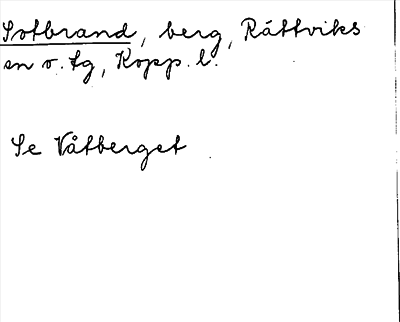 Sotbrand, berg, Rättviks
sn o. tg, Kopp. l.
Se Våtberget